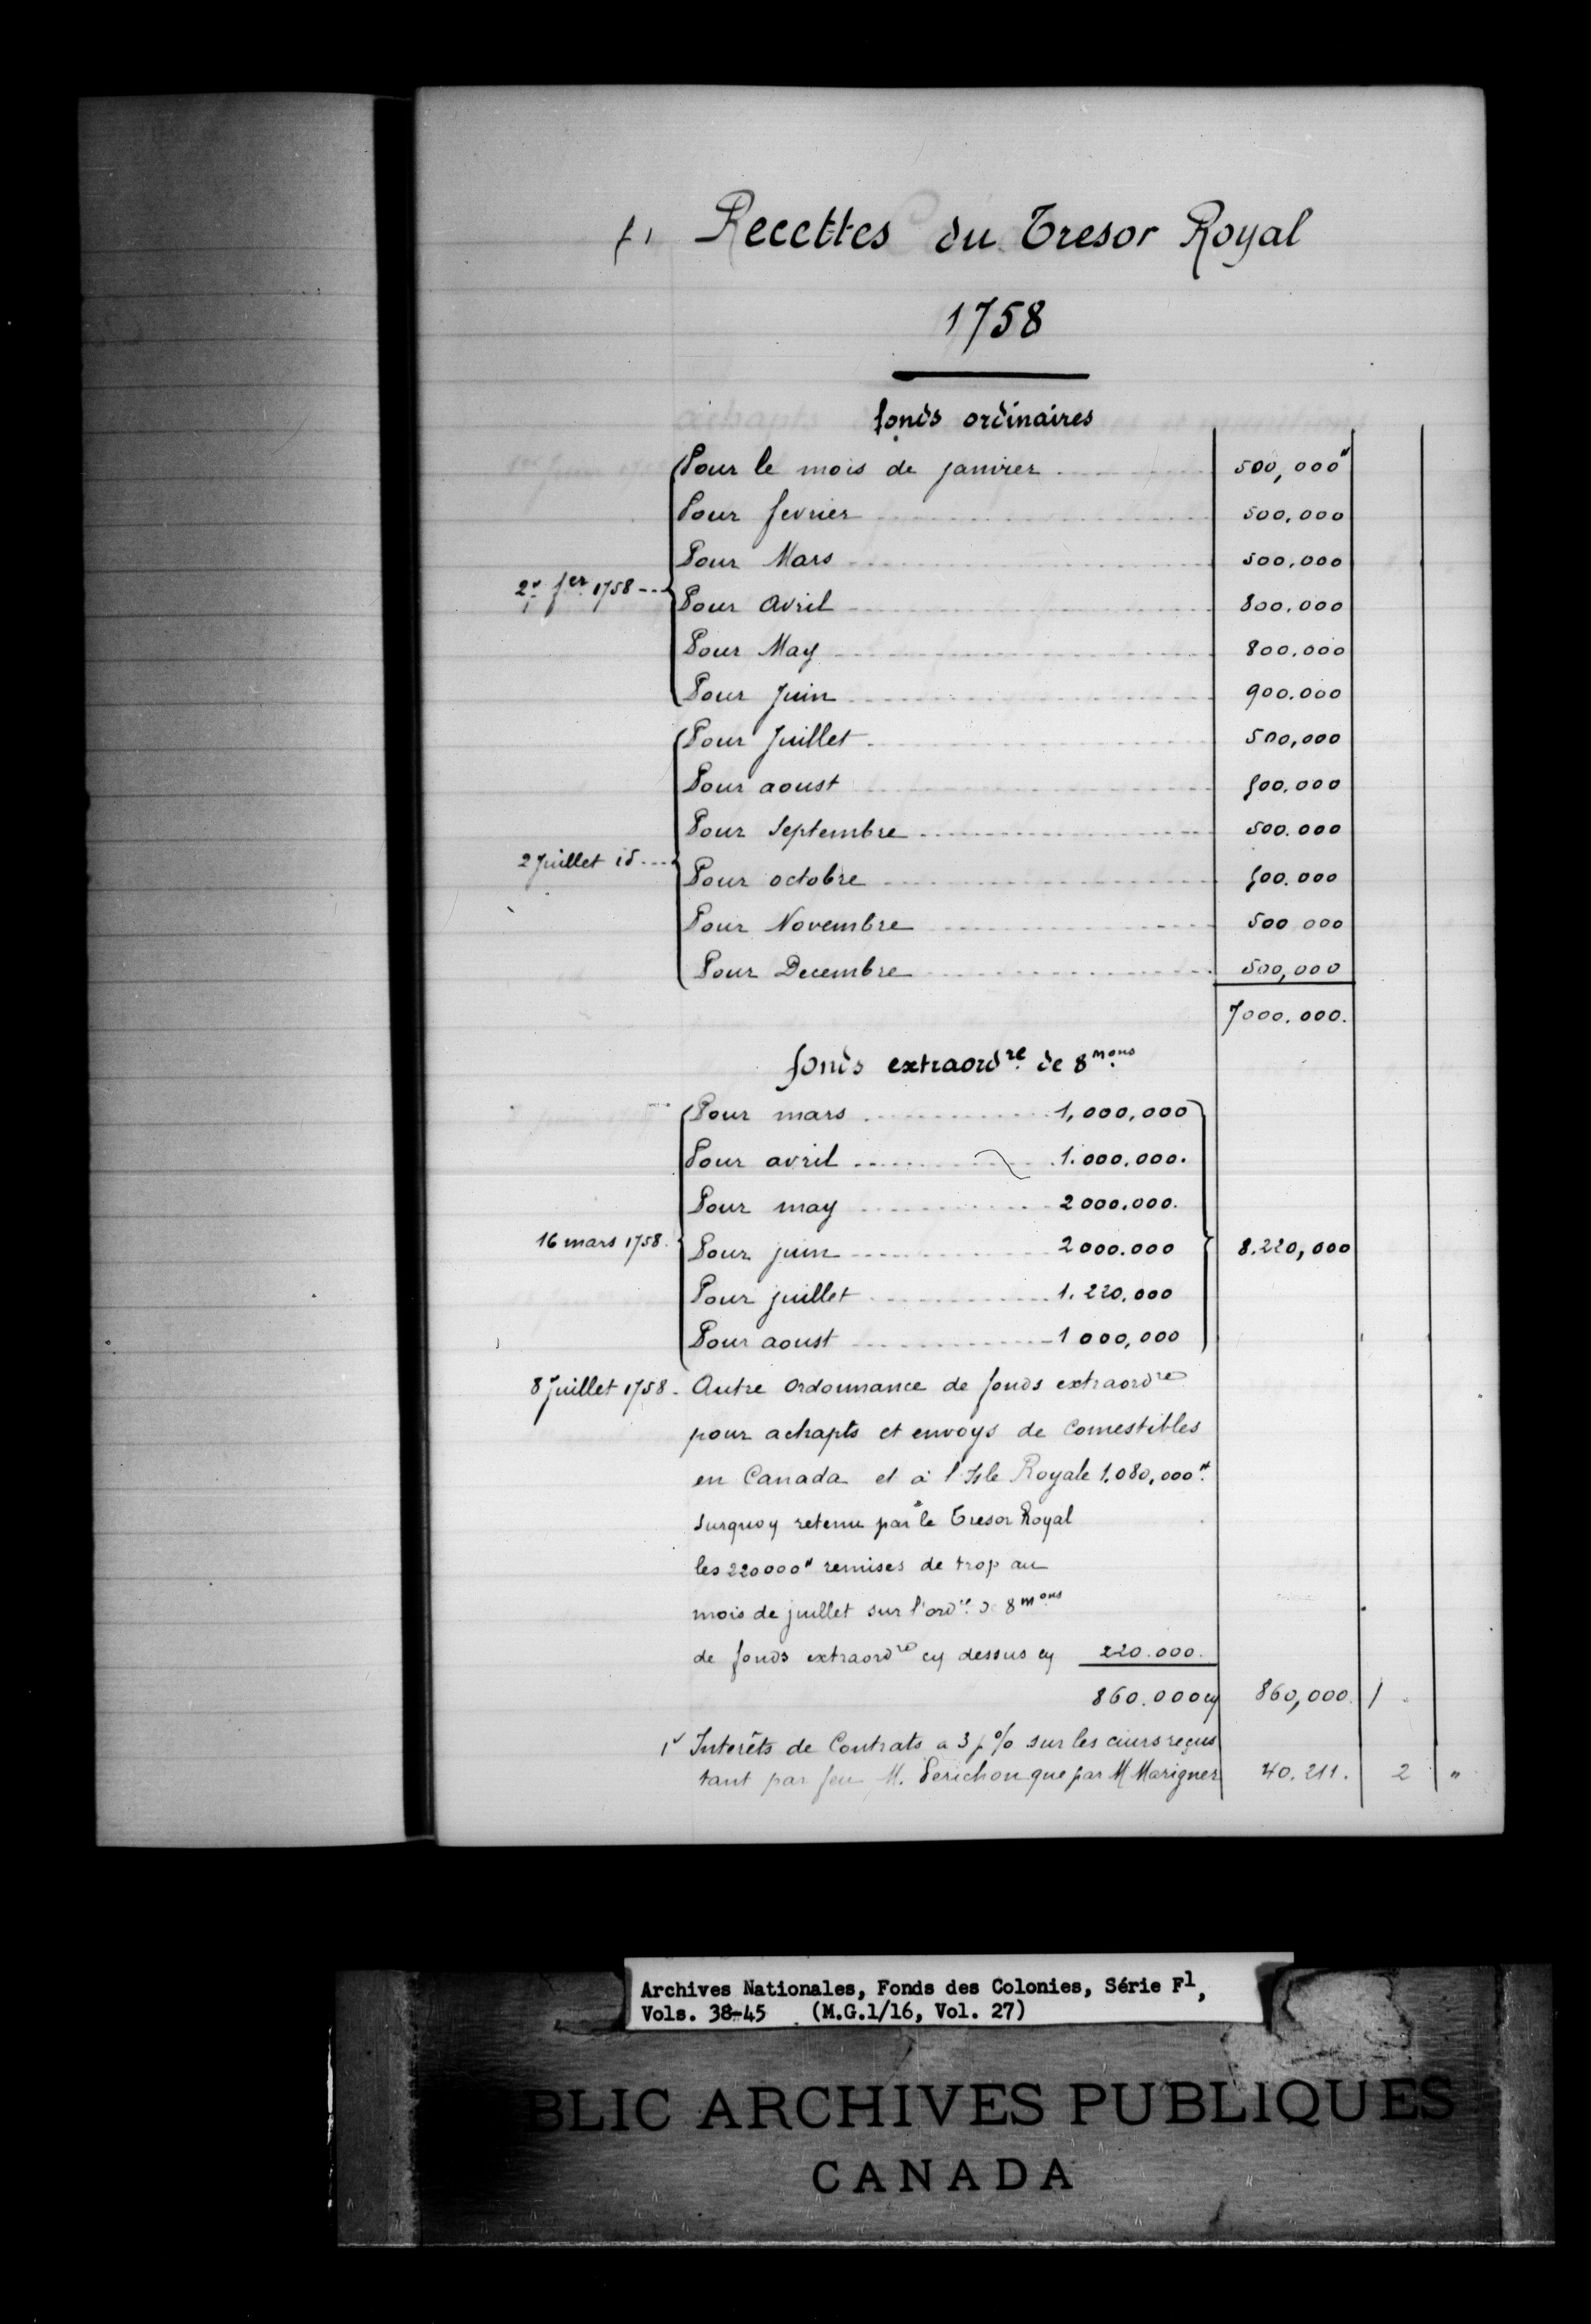 f. 1 Recettes du Tresor Royal
1758
fonds ordinaires
Pour le mois de janvier 500,000"
Pour fevrier 500.000
Pour Mars 500.000
2. fer 1758 Pour Avril 800.000
Pour May 800.000
Pour Juin 900.000
Pour Juillet 500,000
Pour aoust 500.000
Pour Septembre 500.000
2 Juillet id Pour octobre 500.000
Pour Novembre 500 000
Pour Decembre 500,000
7000.000.
fonds extraordre de 8 mons
Pour mars 1,000,000
Pour avril 1.000.000.
Pour may 2000.000.
16 mars 1758. Pour juin 2000.000 8.220,000
Pour juillet 1.220.000
Pour aoust 1000,000
8 Juillet 1758. Autre Ordonnance de fonds extraordre
pour achapts et envoys de Comestibles
en Canada et à l'Isle Royale 1,080,000"
surquoy retenu par le Tresor Royal
les 220000" remises de trop au
mois de juillet sur l'ordce de 8 mons
de fonds extraordre cy dessus cy 220.000.
860.000 cy 860,000. 1 "
Interêts de Contrats a 3 p % sur les reçus
tant par feu M. Perichon que par M Marigner 40.211. 2 "
Archives Nationales, Fonds des Colonies, Série F1,
Vols. 38-45 (M.G.1/16, Vol. 27)
BLIC ARCHIVES PUBLIQUES
CANADA